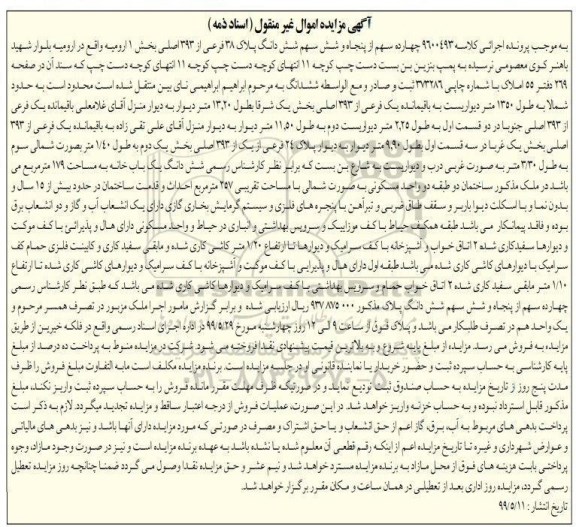 آگهی مزایده اموال غیر منقول ( اسناد ذمه )
به موجب پرونده اجرائی کلاسه ۹۶۰۰۴۹۳ چهارده سهم از پنجاه و شش سهم شش دانگ پلاک ۳۸ فرعی از ۳۹۳ اصلی بخش ۱ ارومیه واقع در ارومیه بلوار شهید
باهنر کوی معصومی نرسیده به پمپ بنزین بن بست دست چپ کوچه ۱۱ انتهای کوچه دست چپ کوچه ۱۱ انتهای کوچه دست چپ که سند آن در صفحه
۲۶۹ دفتر ۵۵ املاک با شماره چاپی ۳۷۳۲۸۶ ثبت و صادر و مع الواسطه ششدانگ به مرحوم ابراهیم ابراهیمی نای بین منتقل شده است محدود است به حدود
شمالا به طول ۱۳۵۰ متر دیواریست به باقیمانده یک فرعی از ۳۹۳ اصلی بخش یک شرقا بطول ۱۳،۲۰ متر دیوار به دیوار منزل آقای غلامعلی باقیمانده یک فرعی
از ۳۹۳ اصلی جنوبا در دو قسمت اول به طول ۲،۲۵ متر دیواریست دوم به طول ۱۱،۵۰ متر دیوار به دیوار منزل آقای علی تقی زاده به باقیمانده یک فرعی از ۳۹۳
اصلی بخش یک غربا در سه قسمت اول بطول ۹،۹۰ متر دیوار به دیوار پلاک ۲۴۰ فرعی از یک از ۳۹۳ اصلی بخش یک دوم به طول ۱،۴۰ متر بصورت شمالی سوم
به طول ۳/۳۰ متر به صورت غربی درب و دیواریست به شارع بن بست که برابر نظر کارشناس رسمی شش دانگ یک باب خانه به مساحت ۱۷۹ مترمربع می
باشد در ملک مذکور ساختمان دو طبقه دو واحد مسکونی به صورت شمالی با مساحت تقریبی ۲۵۷ مترمربع احداث و قدمت ساختمان در حدود بیش از ۱۵ سال و
بدون نما و با اسکلت دیوار باربر و سقف طاق ضربی و تیرآهن با پنجره های فلزی و سیستم گرمایش بخاری گازی دارای یک انشعاب آب و گاز و دو انشعاب برق
بوده و فاقد پیمانکار می باشد طبقه همکف حیاط با کف موزاییک و سرویس بهداشتی و انباری در حیاط و واحد مسکونی دارای هال و پذیرائی با کف موکت
و دیوارها سفیدکاری شده ۲ اتاق خواب و آشپزخانه با کف سرامیک و دیوارها تا ارتفاع ۱/۲۰ متر کاشی کاری شده و مابقی سفید کاری و کابینت فلزی حمام کف
سرامیک با دیوارهای کاشی کاری شده می باشد طبقه اول دارای هال و پذیرایی با کف موکت و آشپزخانه با کف سرامیک و دیوارهای کاشی کاری شده تا ارتفاع
۱/۱۰ متر مابقی سفید کاری شده ۲ اتاق خواب حمام و سرویس بهداشتی با کف سرامیک و دیوارها کاشی کاری شده می باشد که طبق نظر کارشناس رسمی
چهارده سهم از پنجاه و شش سهم شش دانگ پلاک مذکور ۹۳۷/۸۷۵/۰۰۰ ریال ارزیابی شده و برابر گزارش مامور اجرا ملک مزبور در تصرف همسر مرحوم و
یک واحد هم در تصرف طلبکار می باشد و پلاک فوق از ساعت ۹ الی ۱۲ روز چهارشنبه مورخ ۹۹/۵/۲۹ در اداره اجرای اسناد رسمی واقع در فلکه خیرین از طریق
مزایده به فروش می رسد. مزایده از مبلغ پایه شروع و به بالاترین قیمت پیشنهادی نقدا فروخته می شود شرکت در مزایده منوط به پرداخت ده درصد از مبلغ
پایه کارشناسی به حساب سپرده ثبت و حضور خریدار یا نماینده قانونی او در جلسه مزایده است. برنده مزایده مکلف است مابه التفاوت مبلغ فروش را ظرف
مدت پنج روز از تاریخ مزایده به حساب صندوق ثبت تودیع نماید و در صورتیکه ظرف مهلت مقرر مانده فروش را به حساب سپرده ثبت واریز نکند، مبلغ
مذکور قابل استرداد نبوده و به حساب خزانه واریز خواهد شد. در این صورت، عملیات فروش از درجه اعتبار ساقط و مزایده تجدید میگردد. لازم به ذکر است
پرداخت بدهی های مربوط به آب، برق، گاز اعم از حق انشعاب و یا حق اشتراک و مصرف در صورتی که مورد مزایده دارای آنها باشد و نیز بدهی های مالیاتی
و عوارض شهرداری و غیره تا تاریخ مزایده اعم از اینکه رقم قطعی آن معلوم شده یا نشده باشد به عهده برنده مزایده است و نیز در صورت وجود مازاد، وجوه
پرداختی بابت هزینه های فوق از محل مازاد به برنده مزایده مسترد خواهد شد و نیم عشر و حق مزایده نقدا وصول می گردد ضمنا چنانچه روز مزایده تعطیل
رسمی گردد، مزایده روز اداری بعد از تعطیلی در همان ساعت و مکان مقرر برگزار خواهد شد.
تاریخ انتشار : ۹۹/۵/۱۱